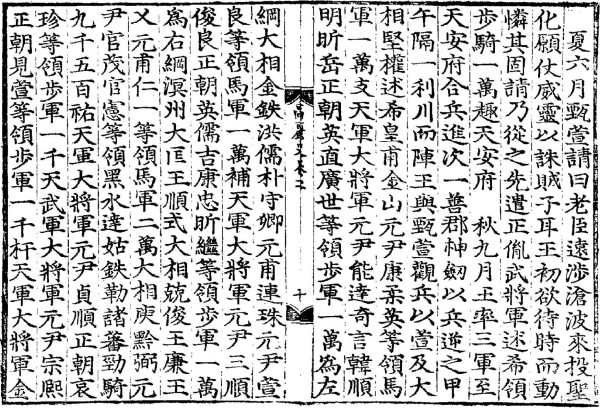 夏六月甄萱請曰老臣遠涉滄波來投聖
化願仗威靈以誅賊子耳王初欲待時而動
憐其固請乃從之先遣正胤武將軍述希領
步騎一萬趣天安府　秋九月王率三軍至
天安府合兵進次一善郡神劒以兵逆之甲
午隔一利川而陣王與甄萱觀兵以萱及大
相堅權述希皇甫金山元尹康柔英等領馬
軍一萬支天軍大將軍元尹能達奇言韓順
明昕岳正朝英直廣世等領步軍一萬爲左
高麗史卷二
十
綱大相金鉄洪儒朴守卿元甫連珠元尹萱
良等領馬軍一萬補天軍大將軍元尹三順
俊良正朝英儒吉康忠昕繼等領步軍一萬
爲右綱溟州大匡王順式大相兢俊王廉王
乂元甫仁一等領馬軍二萬大相庾黔弼元
尹官茂官憲等領黑水達姑鉄勒諸蕃勁騎
九千五百祐天軍大將軍元尹貞順正朝哀
珍等領步軍一千天武軍大將軍元尹宗熙
正朝見萱等領步軍一千杆天軍大將軍金